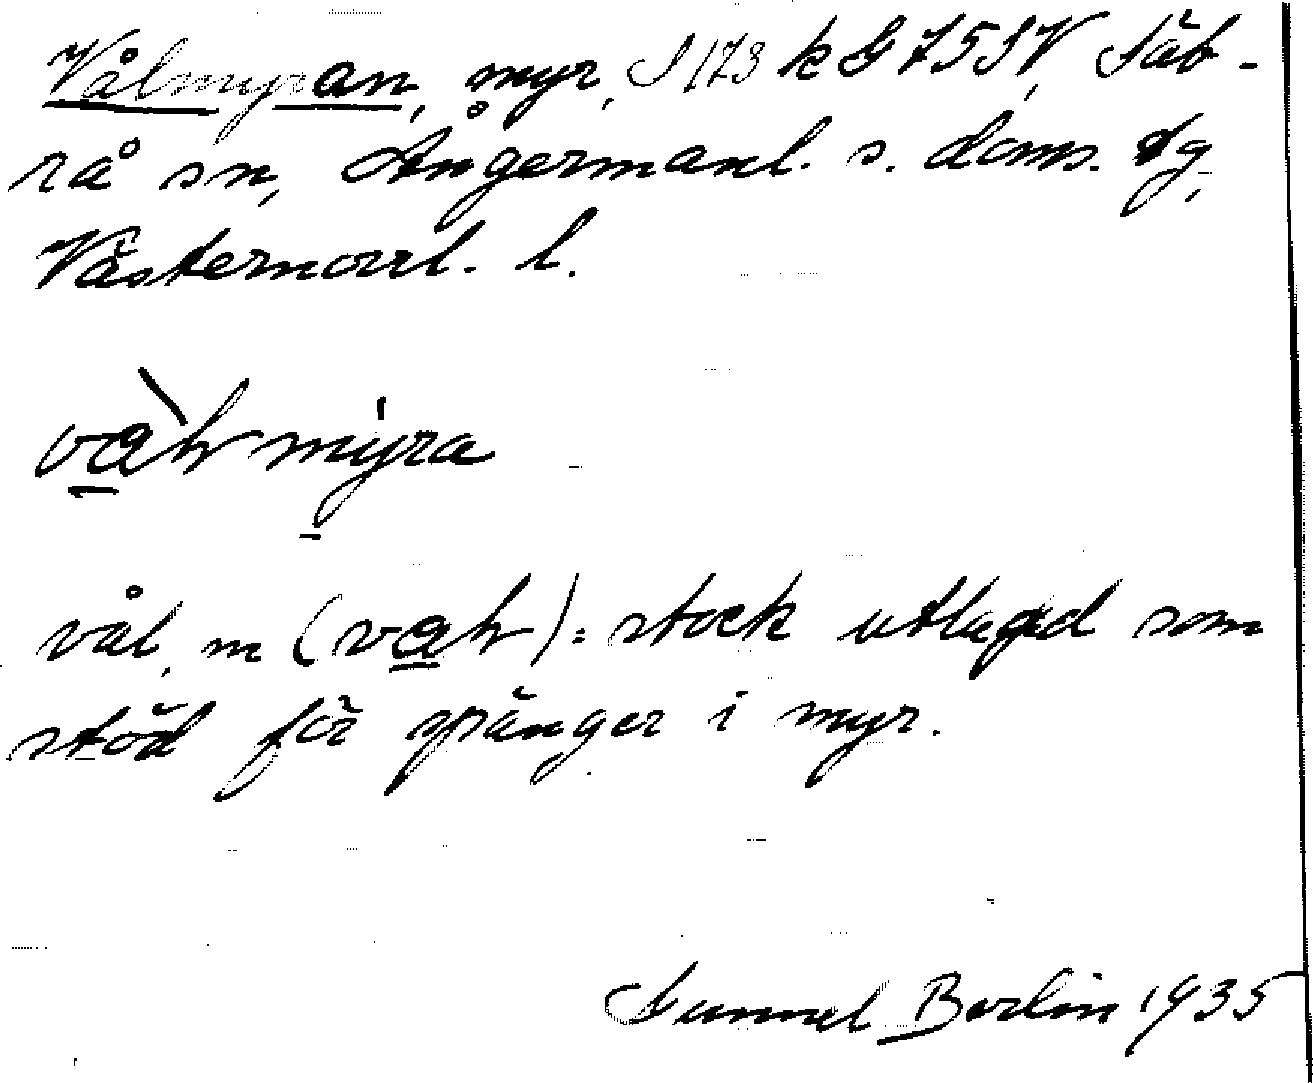 Vålmyran, myr, S 173 k G 7515V, Säb-
rå sn, Ångermanl. s. doms. tg,
Västernorrl. l.
vàłmýra
vål, m (vał): stock utlagd som
stöd för spänger i myr.
Gunnel Berlin 1935